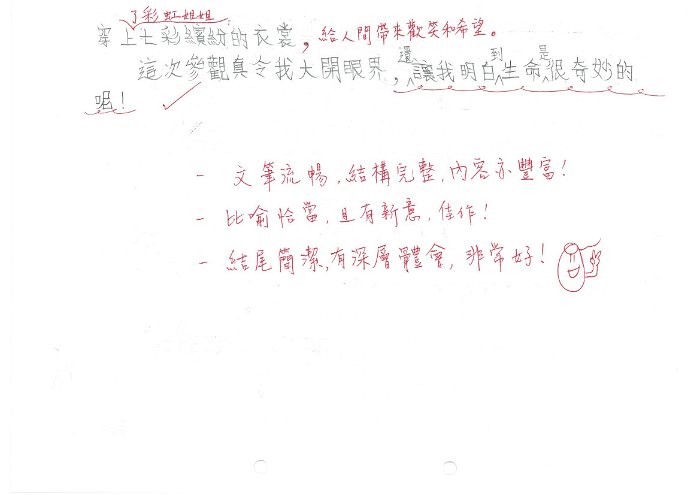 了彩虹姐姐
穿上七彩繽紛的衣裳，給人間帶來歡笑和希望。
還 到 是
這次參觀真令我大開眼界，讓我明白生命很奇妙的
呢！
- 文筆流暢，結構完整，內容亦豐富！
- 比喻恰當，且有新意，佳作！
- 結尾簡潔，有深層體會，非常好！